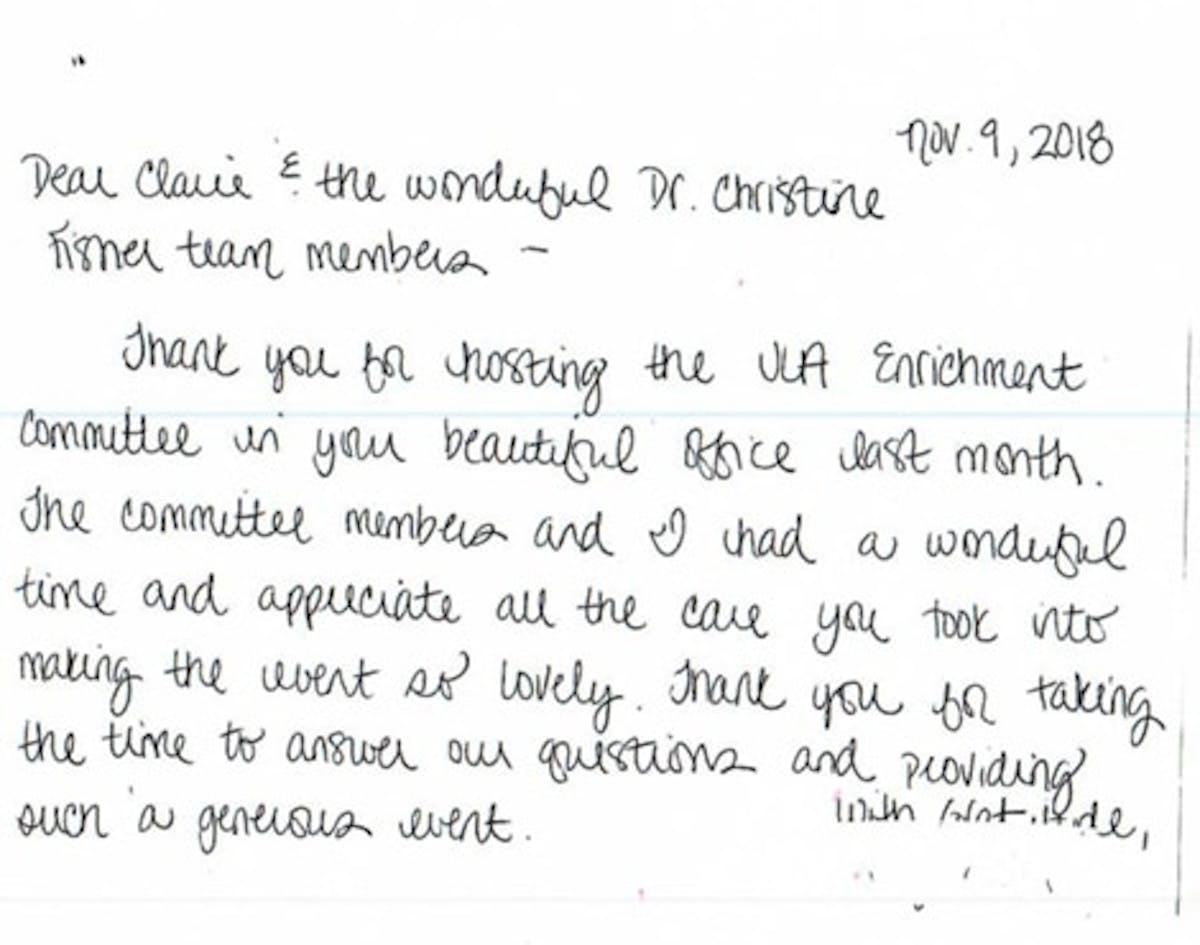 Nov. 9, 2018
Dear Claire & the wonderful Dr. Christine
Fisher team members -
Thank you for hosting the Enrichment
committee in your beautiful office last month.
The committee members and I had a wonderful
time and appreciate all the care you took into
making the event so lovely. Thank you for taking
the time to answer our questions and providing
such a generous event.
With